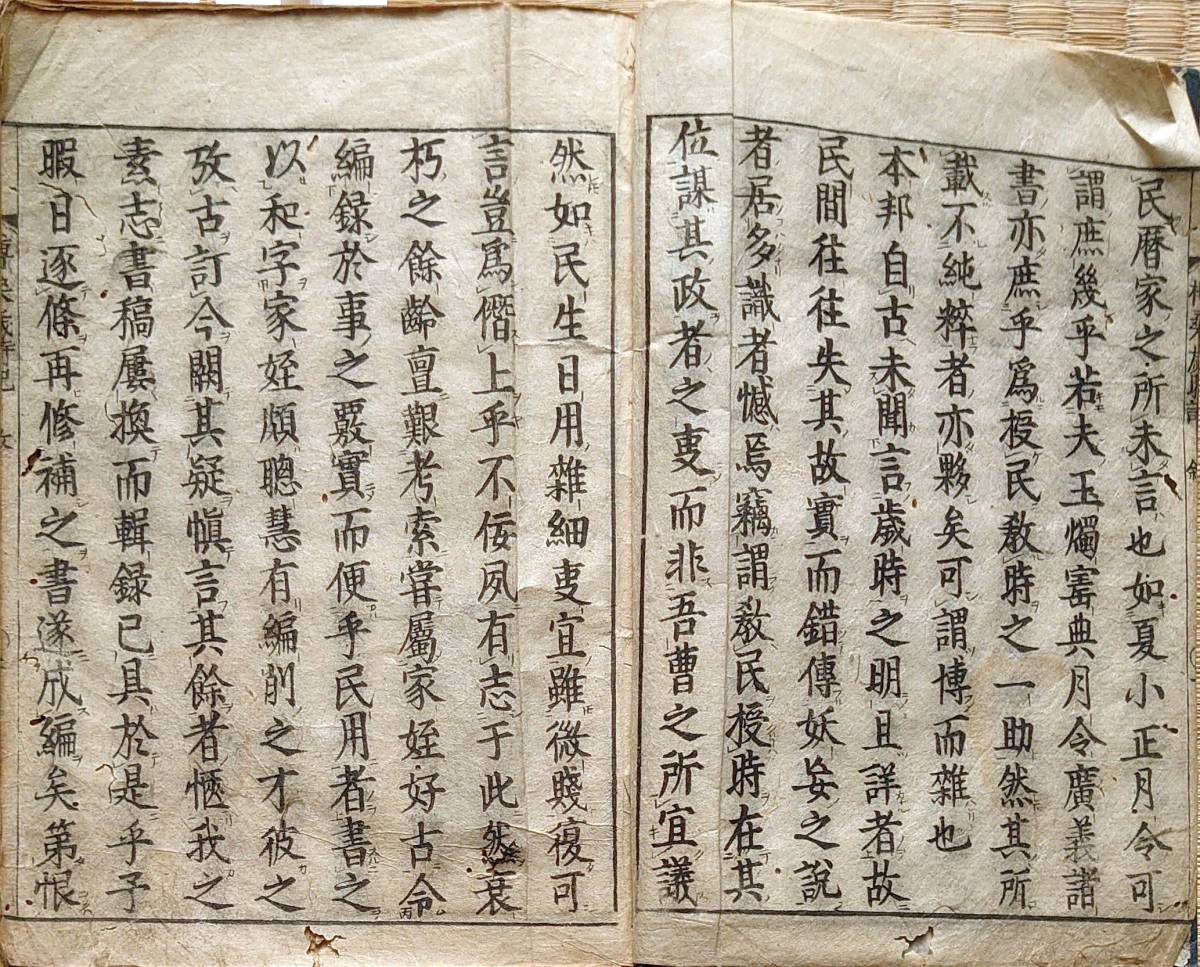 民暦家之所未言也如夏小正月令可
謂庶幾乎若夫玉燭寳典月令廣義諸
書亦庶乎爲授民教時之一助然其所
載不純粹者亦夥矣可謂博而雜也
本邦自古未聞言歳時之明且詳者故
民間往往失其故實而錯傳妖妄之說
者居多識者憾焉竊謂教民授時在其
位謀其政者之叓而非吾曹之所宜議
然如民生日用雜細叓宜雖微賤復可
言豈爲僭上乎不佞夙有志于此然衰
朽之餘齡亶艱考索嘗屬家姪好古令
編録於事之覈實而便乎民用者書之
以和字家姪頗聰慧有編削之才彼之
攷古訂今闕其疑愼言其餘者愜我之
素志書稿屢換而輯録已具於是乎予
暇日逐條再修補之書遂成編矣第恨